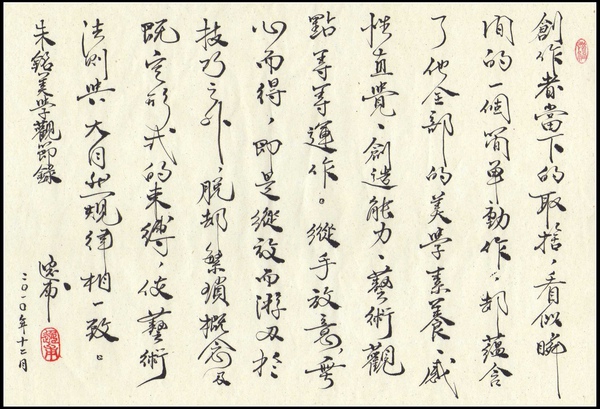 創作者當下的取捨，看似瞬
間的一個簡單動作，卻蘊含
了他全部的美學素養、感
性直覺、創造能力、藝術觀
點等等運作。縱手放意，無
心而得，即是縱放而游刃於
技巧之外，脫卻繁瑣概念及
既定形式的束縛，使藝術
法則與大自然規律相一致。
朱銘美學觀節錄
二〇一〇年十二月